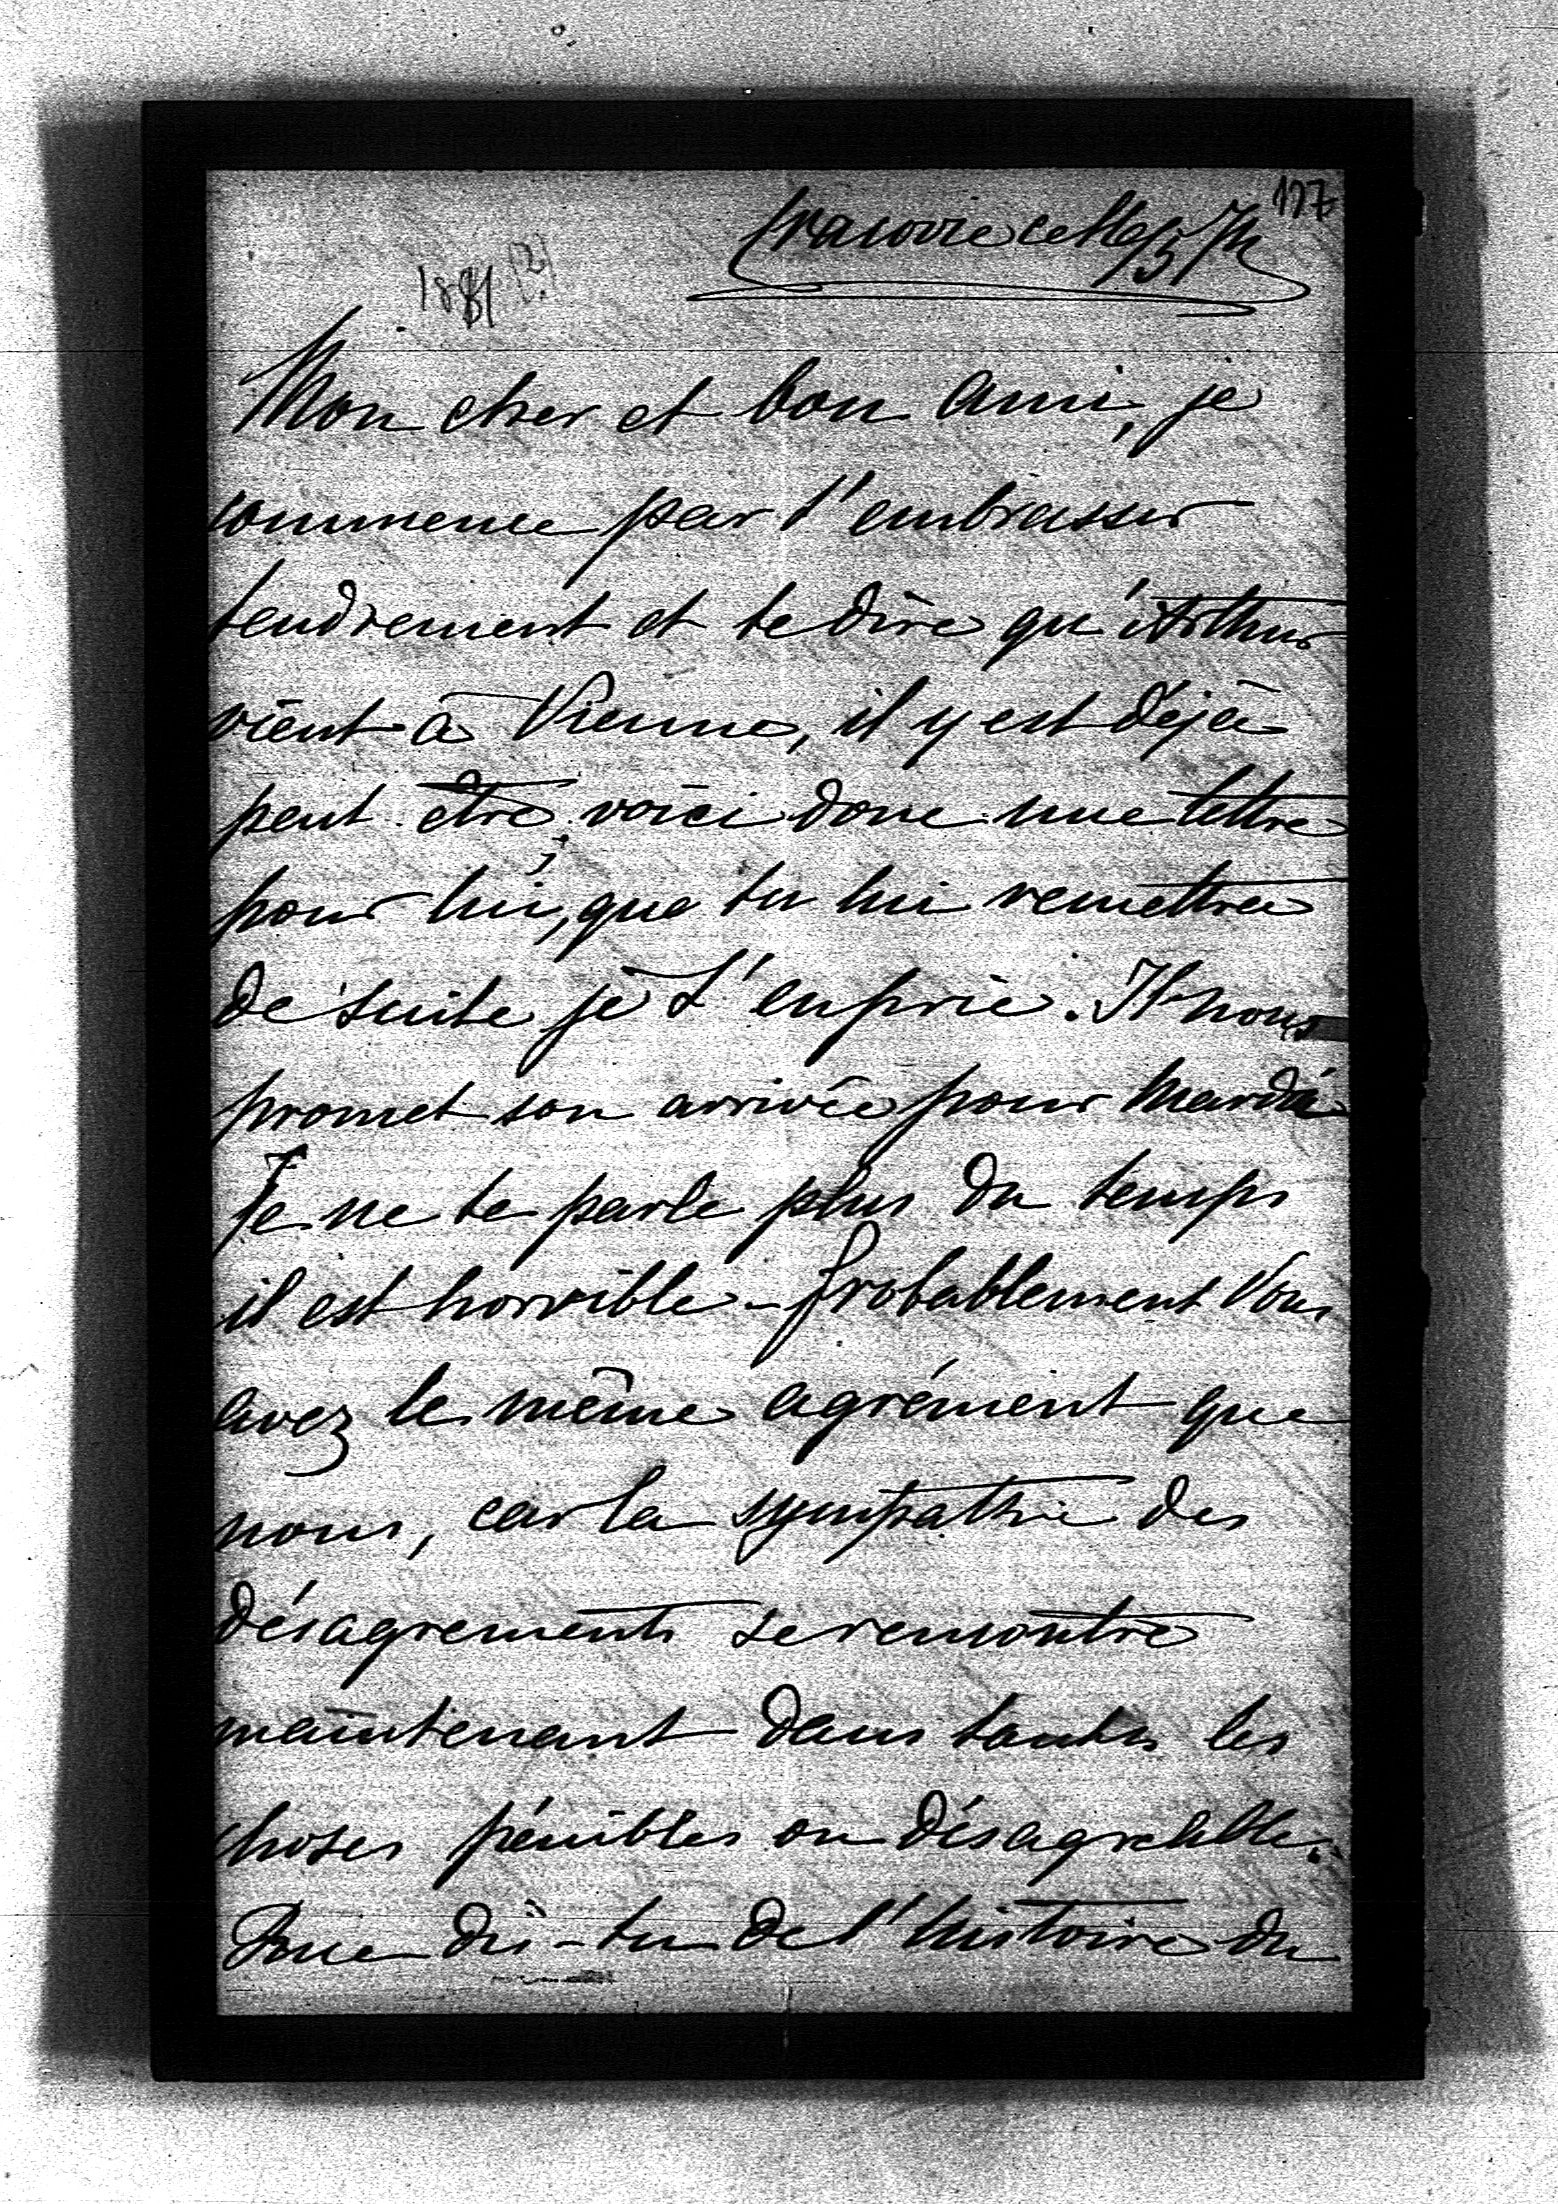 127
Cracovie ce 16/5
1881 (?)
Mon cher et bon ami, je
commence par t'embrasser
tendrement et te dire qu'Arthur
vient à Vienne, il y est déjà
peut être, voici donc une lettre
pour lui, que tu lui remettra
de suite je t'en prie. Il nous
promet son arrivée pour mardi
Je ne te parle plus du temps
il est horrible - probablement Vous
avez le même agrément que
nous, car la sympathie des
désagrements se remontre
maintenant dans toutes les
choses pénibles ou désagreables.
Que dis-tu de l'histoire du